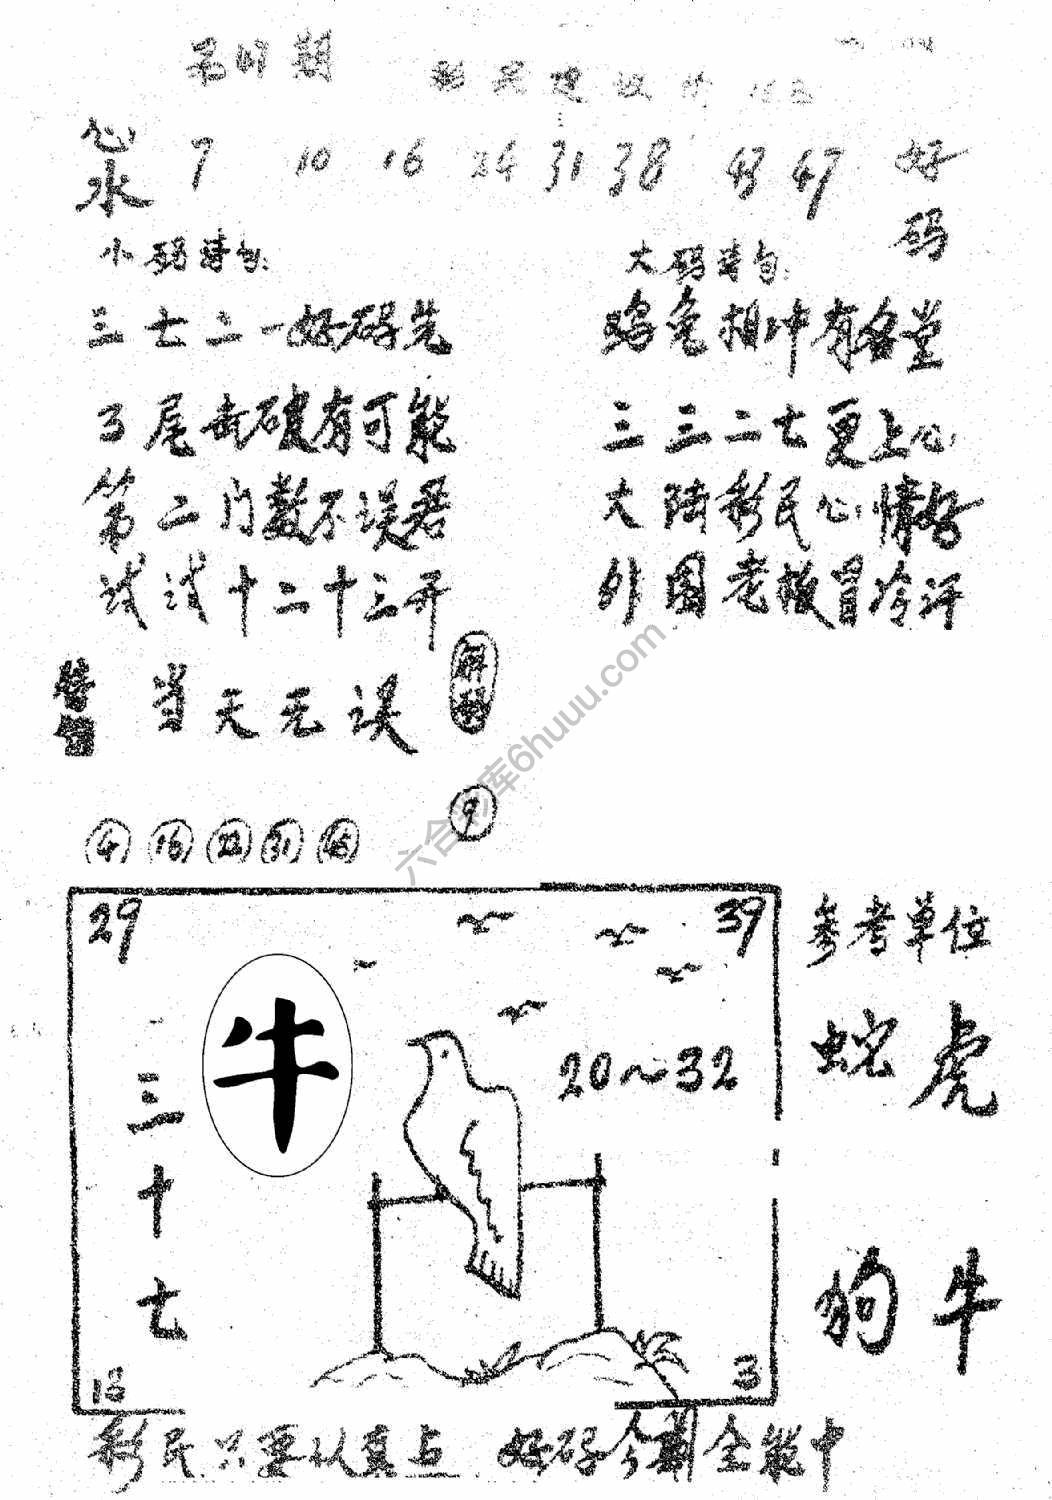 期
心水 7 10 16 24 31 38 43 47 好码
小码诗句:
三七二一好码先
3尾击破有可能
第二门数不误君
试试十二十三开
大码诗句:
鸡兔相冲有名堂
三三二七更上心
大陆彩民心情好
外围老板冒冷汗
当天无误
解
9
4 16 22 31
六合彩库6huuu.com
29
39
牛
20~32
三十七
3
参考单位
蛇 虎
狗 牛
彩民只要认真点 好码今期全能中